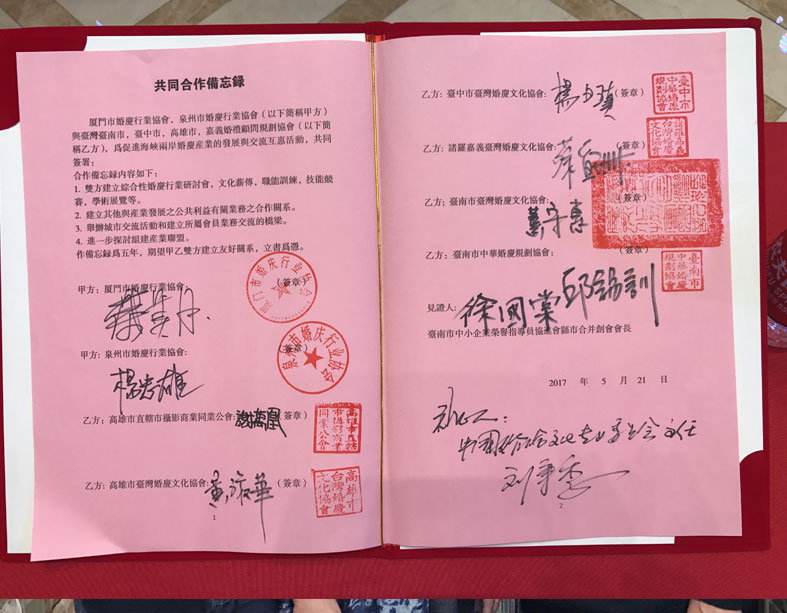 共同合作備忘录
厦門市婚慶行業協會,泉州市婚慶行業協會(以下簡稱甲方)
與臺灣臺南市,臺中市,高雄市,嘉義婚禮顧問規劃協會(以下簡
稱乙方),爲促進海峽兩岸婚慶產業的發展與交流互惠活動,共同
簽署:
合作備忘录内容如下:
1. 雙方建立綜合性婚慶行業研討會,文化薪傳,職能訓練,技能競
賽,學術展覽等。
2. 建立其他與産業發展之公共利益有關業務之合作關系。
3. 舉辦城市交流活動和建立所屬會員業務交流的橋梁。
4. 進一步探討組建産業聯盟。
作備忘録爲五年,期望甲乙雙方建立友好關系,立書爲憑。
甲方:厦門市婚慶行業協會:
(簽章)
厦门市婚庆行业协会
甲方:泉州市婚慶行業協會:
(簽章)
泉州市婚庆行业协会
楊忠雄
乙方:高雄市直轄市攝影商業同業公會:
(簽章)
高雄市直轄
市攝影商業
同業公會
乙方:高雄市臺灣婚慶文化協會:
(簽章)
高雄市
台灣婚慶
文化協會
1
乙方:臺中市臺灣婚慶文化協會:
(簽章)
臺中市
中華婚慶
規劃協會
乙方:諸羅嘉義臺灣婚慶文化協會:
(簽章)
諸羅嘉義
台灣婚慶
文化協會
乙方:臺南市臺灣婚慶文化協會:
(簽章)
乙方:臺南市中華婚慶規劃協會:
(簽章)
臺南市
中華婚慶
規劃協會
邱錦訓
見證人:
徐國棠
臺南市中小企業榮譽指導員協進會縣市合并創會會長
2017 年 5 月 21 日
2